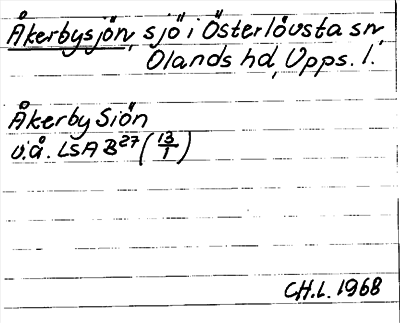 Åkerbysjön, sjö i Österlövsta sn
Olands hd, Upps. l.
Åkerby Siön
u.å. LSA B27 (13/1)
CH.L. 1968